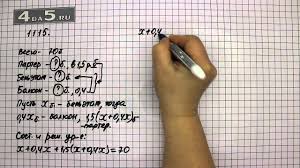 4DA5.RU
1115.
Всего - 70б
Партер - ?б, в 1,5 р б
Бельэтаж - ?б
Балкон - ?б, 0,4
Пусть x б - бельэтаж, тогда
0,4x б - балкон, 1,5(x+0,4x)б
- партер.
Сост и реш. ур-е:
x+0,4x+1,5(x+0,4x)=70
x+0,4